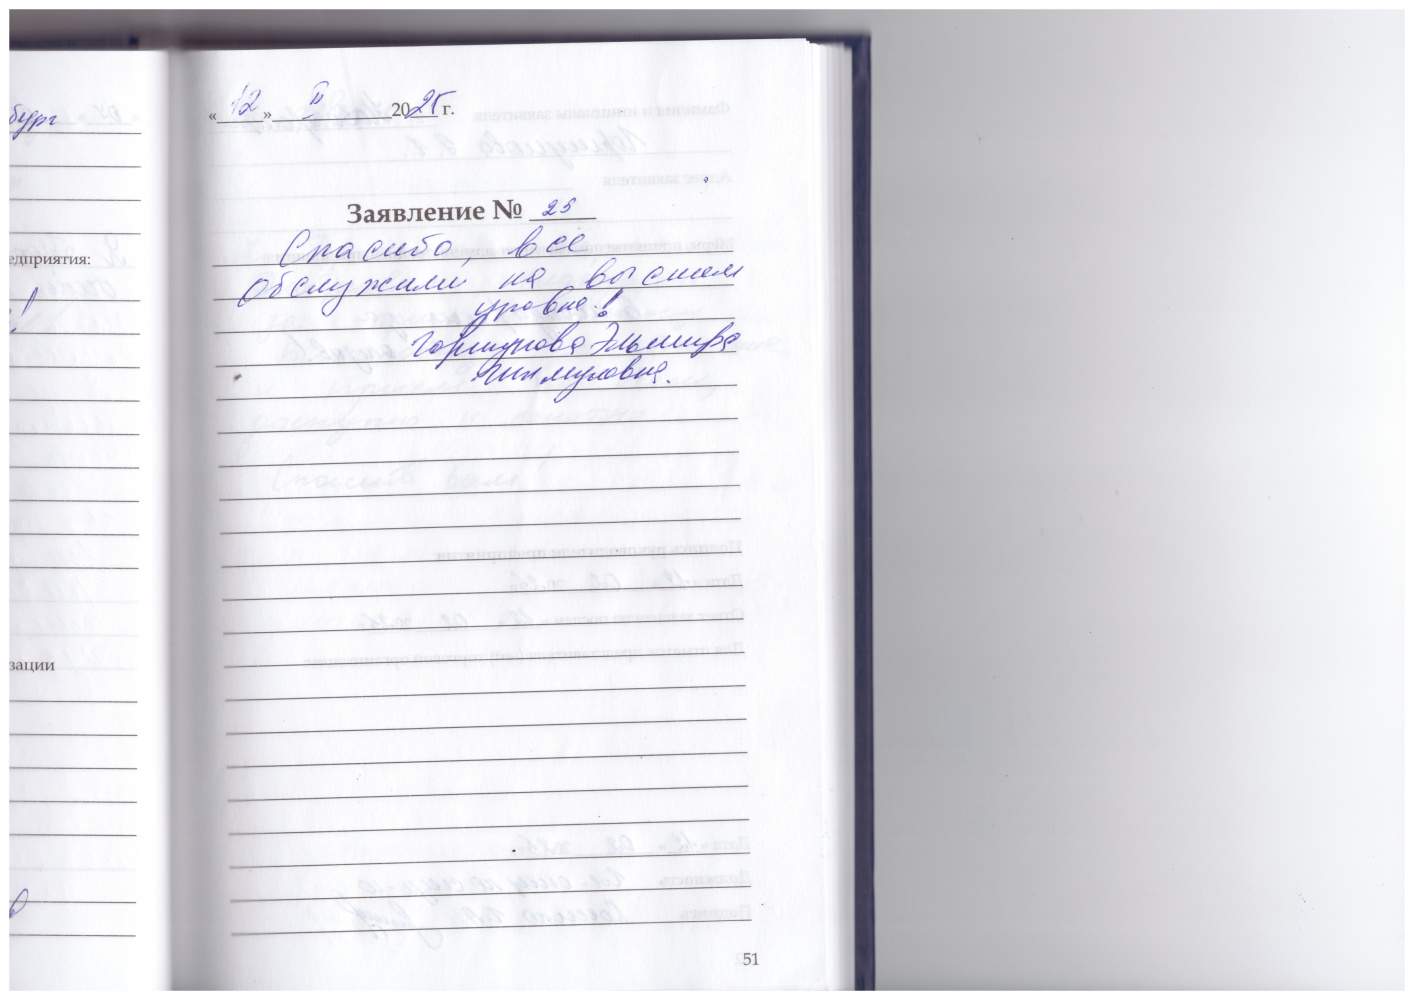 бург
едприятия:
зации
«12» II 2025 г.
Заявление № 25
Спасибо, все
обслужили на высшем
уровне!
Горшунова Эльмира
51